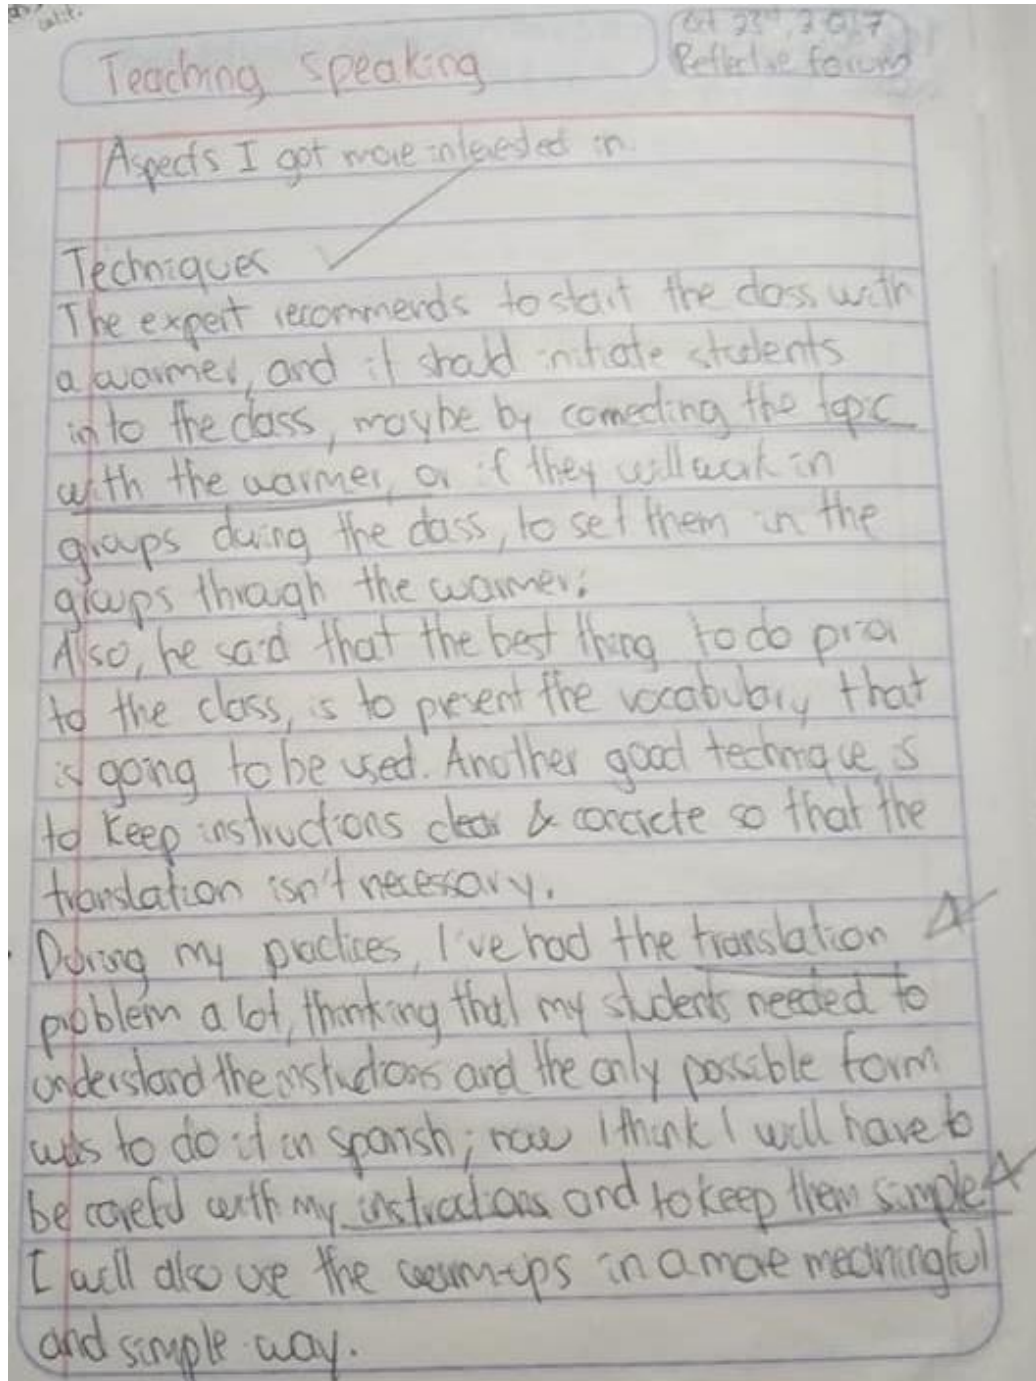 Oct 23rd, 2017
Teaching Speaking
Reflective forum
Aspects I got more interested in.
Techniques
The expert recommends to start the class with
a warmer, and it should initiate students
into the class, maybe by connecting the topic
with the warmer, or if they will work in
groups during the class, to set them in the
groups through the warmer.
Also, he said that the best thing to do prior
to the class, is to present the vocabulary that
is going to be used. Another good technique is
to keep instructions clear & concrete so that the
translation isn't necessary.
During my practices, I've had the translation
problem a lot, thinking that my students needed to
understand the instructions and the only possible form
was to do it in spanish; now I think I will have to
be careful with my instructions and to keep them simple
I will also use the warm-ups in a more meaningful
and simple way.